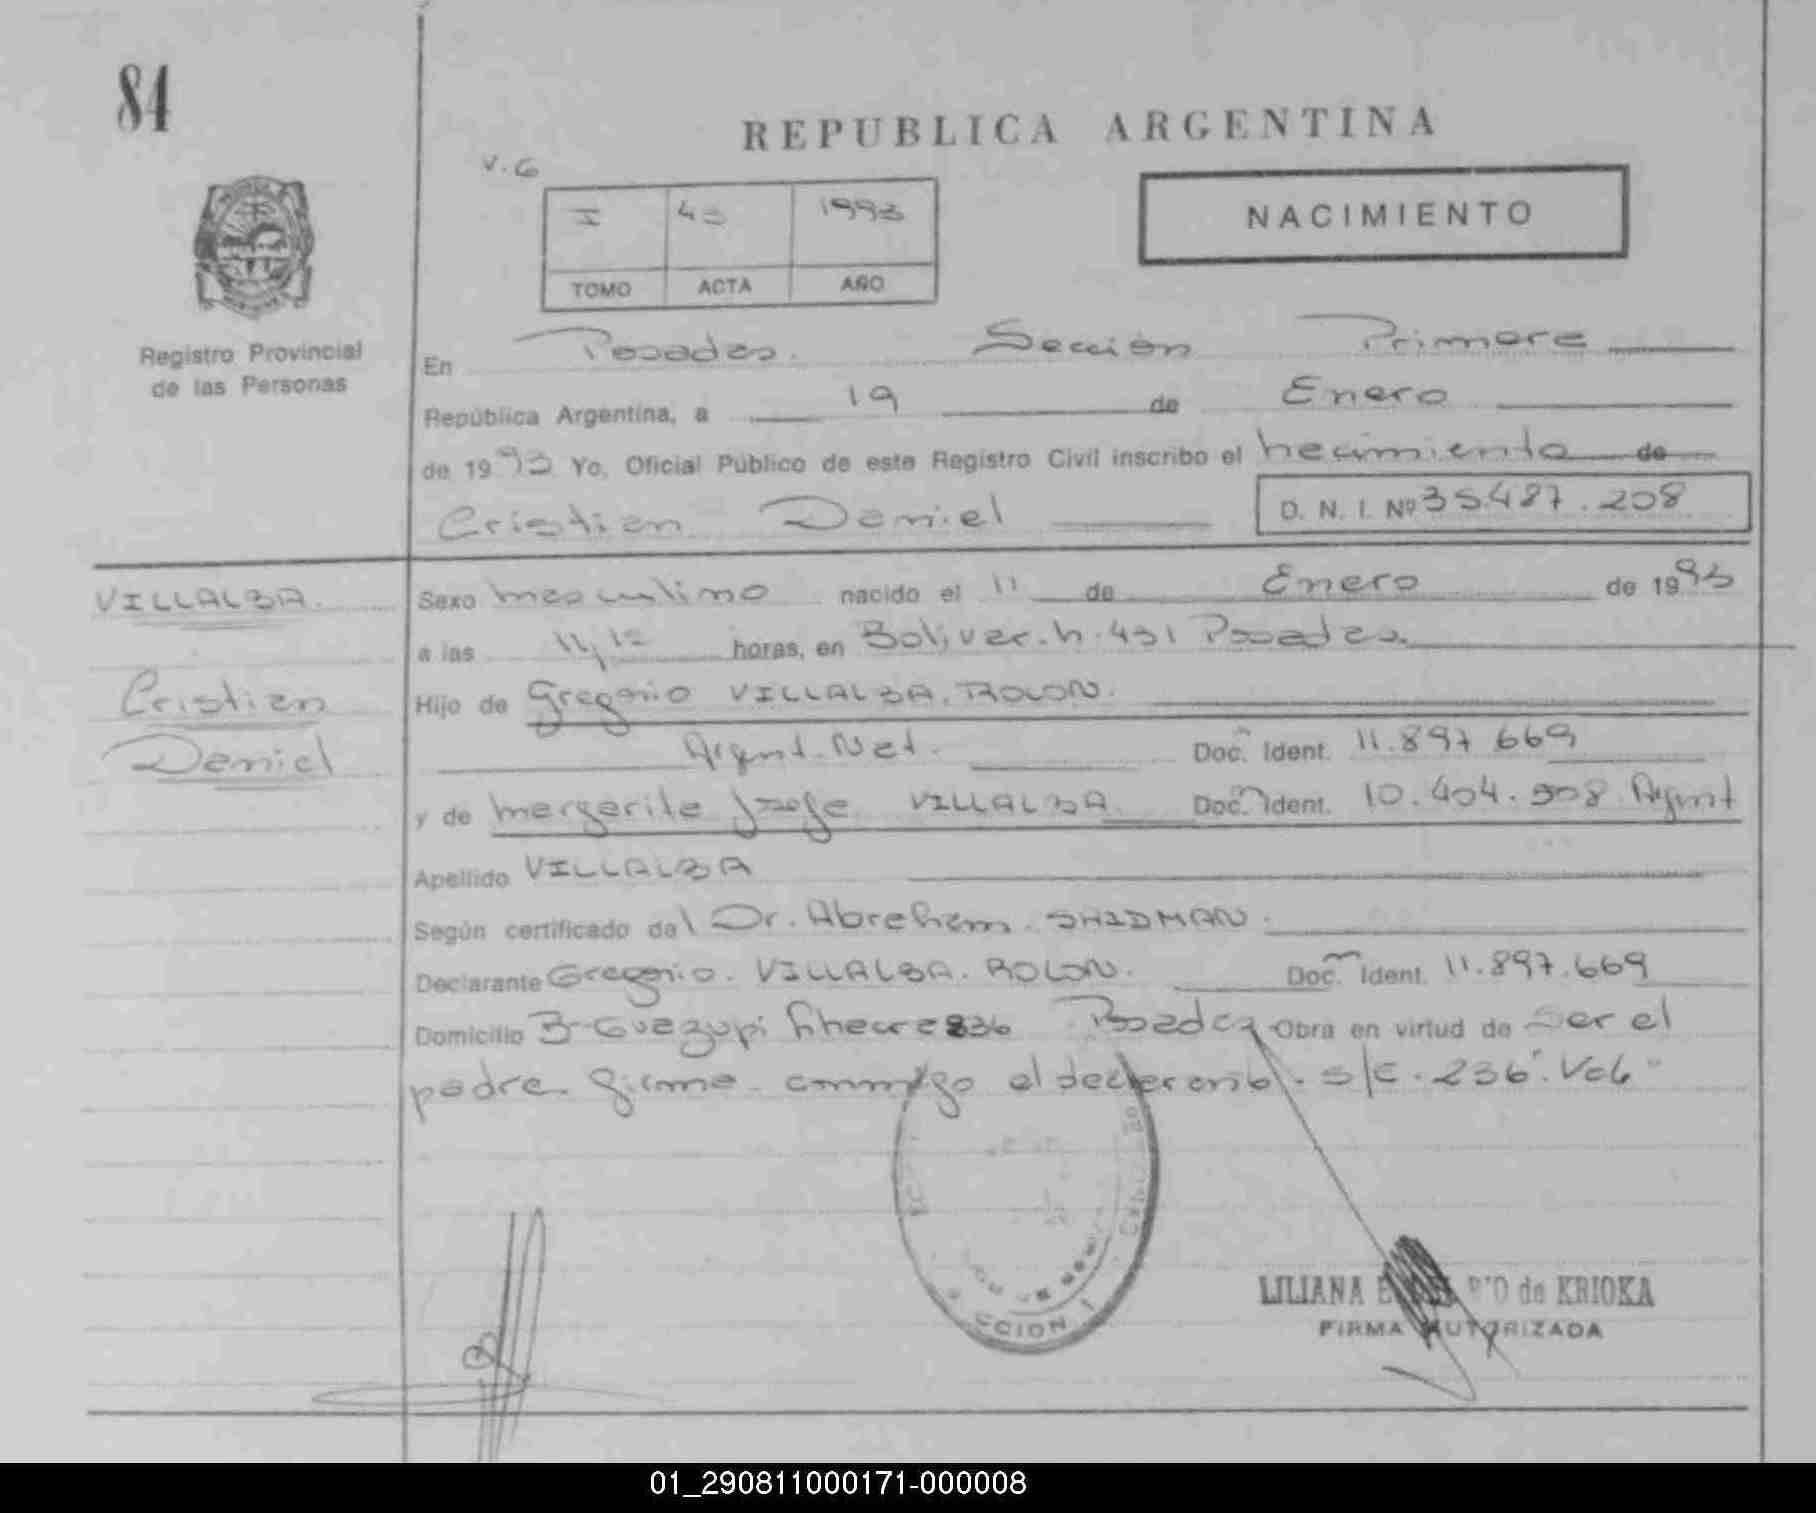 84
REPUBLICA ARGENTINA
V.6
I 43 1993
TOMO ACTA AÑO
NACIMIENTO
Registro Provincial
de las Personas
En Posadas. Sección Primera
República Argentina, a 19 de Enero
de 1993 Yo, Oficial Público de este Registro Civil inscribo el nacimiento de
Cristian Daniel D. N. I. Nº 35.487.208
VILLALBA.
Cristian
Daniel
Sexo masculino nacido el 11 de Enero de 1993
a las 11,10 horas, en Bolivar. n. 431 Posadas.
Hijo de Gregorio VILLALBA. ROLON.
Argent. Nat. Doc. Ident. 11.897.669
y de Margarita VILLALBA. Doc. Ident. 10.404.908 Argent
Apellido VILLALBA
Según certificado del Dr. Abraham
Declarante Gregorio. VILLALBA. ROLON. Doc. Ident. 11.897.669
Domicilio 836 Posadas Obra en virtud de Ser el
padre. firma conmigo el declarante. S/C. 236". V.6"
CCION 1
LILIANA de KRIOKA
FIRMA AUTORIZADA
01_290811000171-000008